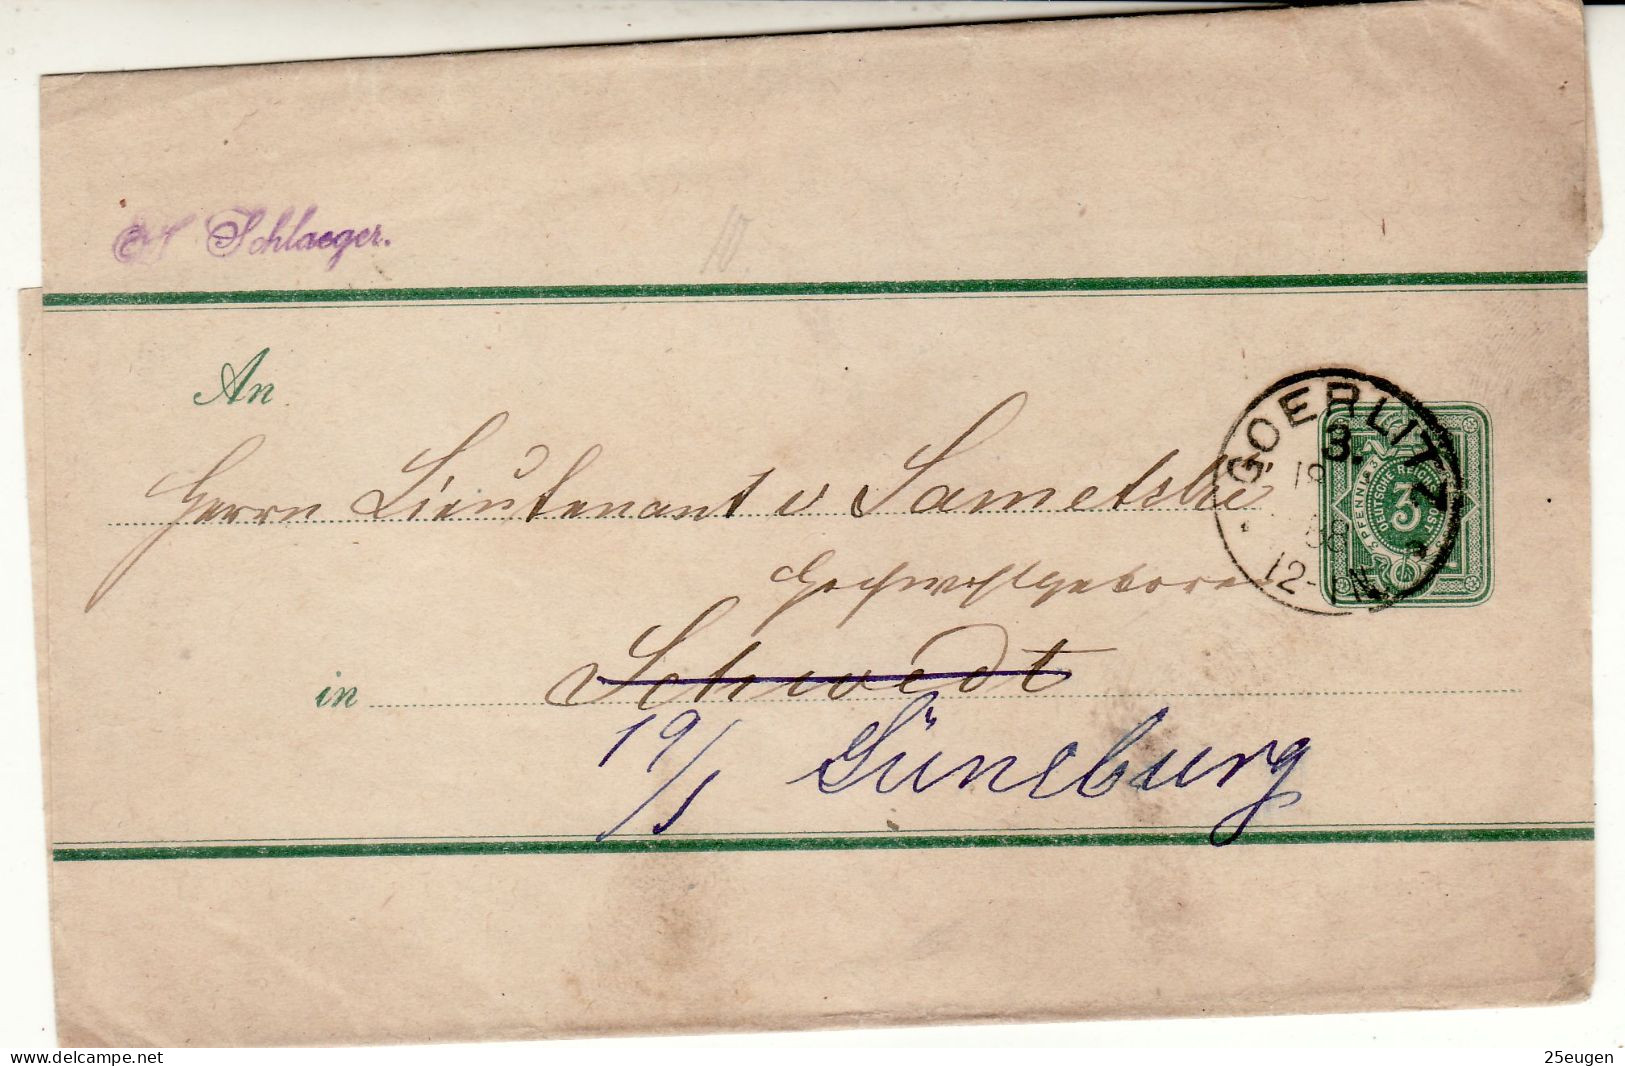 Schlaeger.
10
An
Herrn Lieutenant v Sametzki
Hochwohlgeboren
in Schwedt
19/5 Lüneburg
GOERLITZ
3.
18
88
12-1N.
DEUTSCHE REICHS-POST
3 PFENNIG 3
3
delcampe.net
25eugen